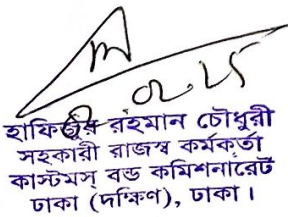 ০২.২৫
হাফিজুর রহমান চৌধুরী
সহকারী রাজস্ব কর্মকর্তা
কাস্টমস্ বন্ড কমিশনারেট
ঢাকা (দক্ষিণ), ঢাকা।